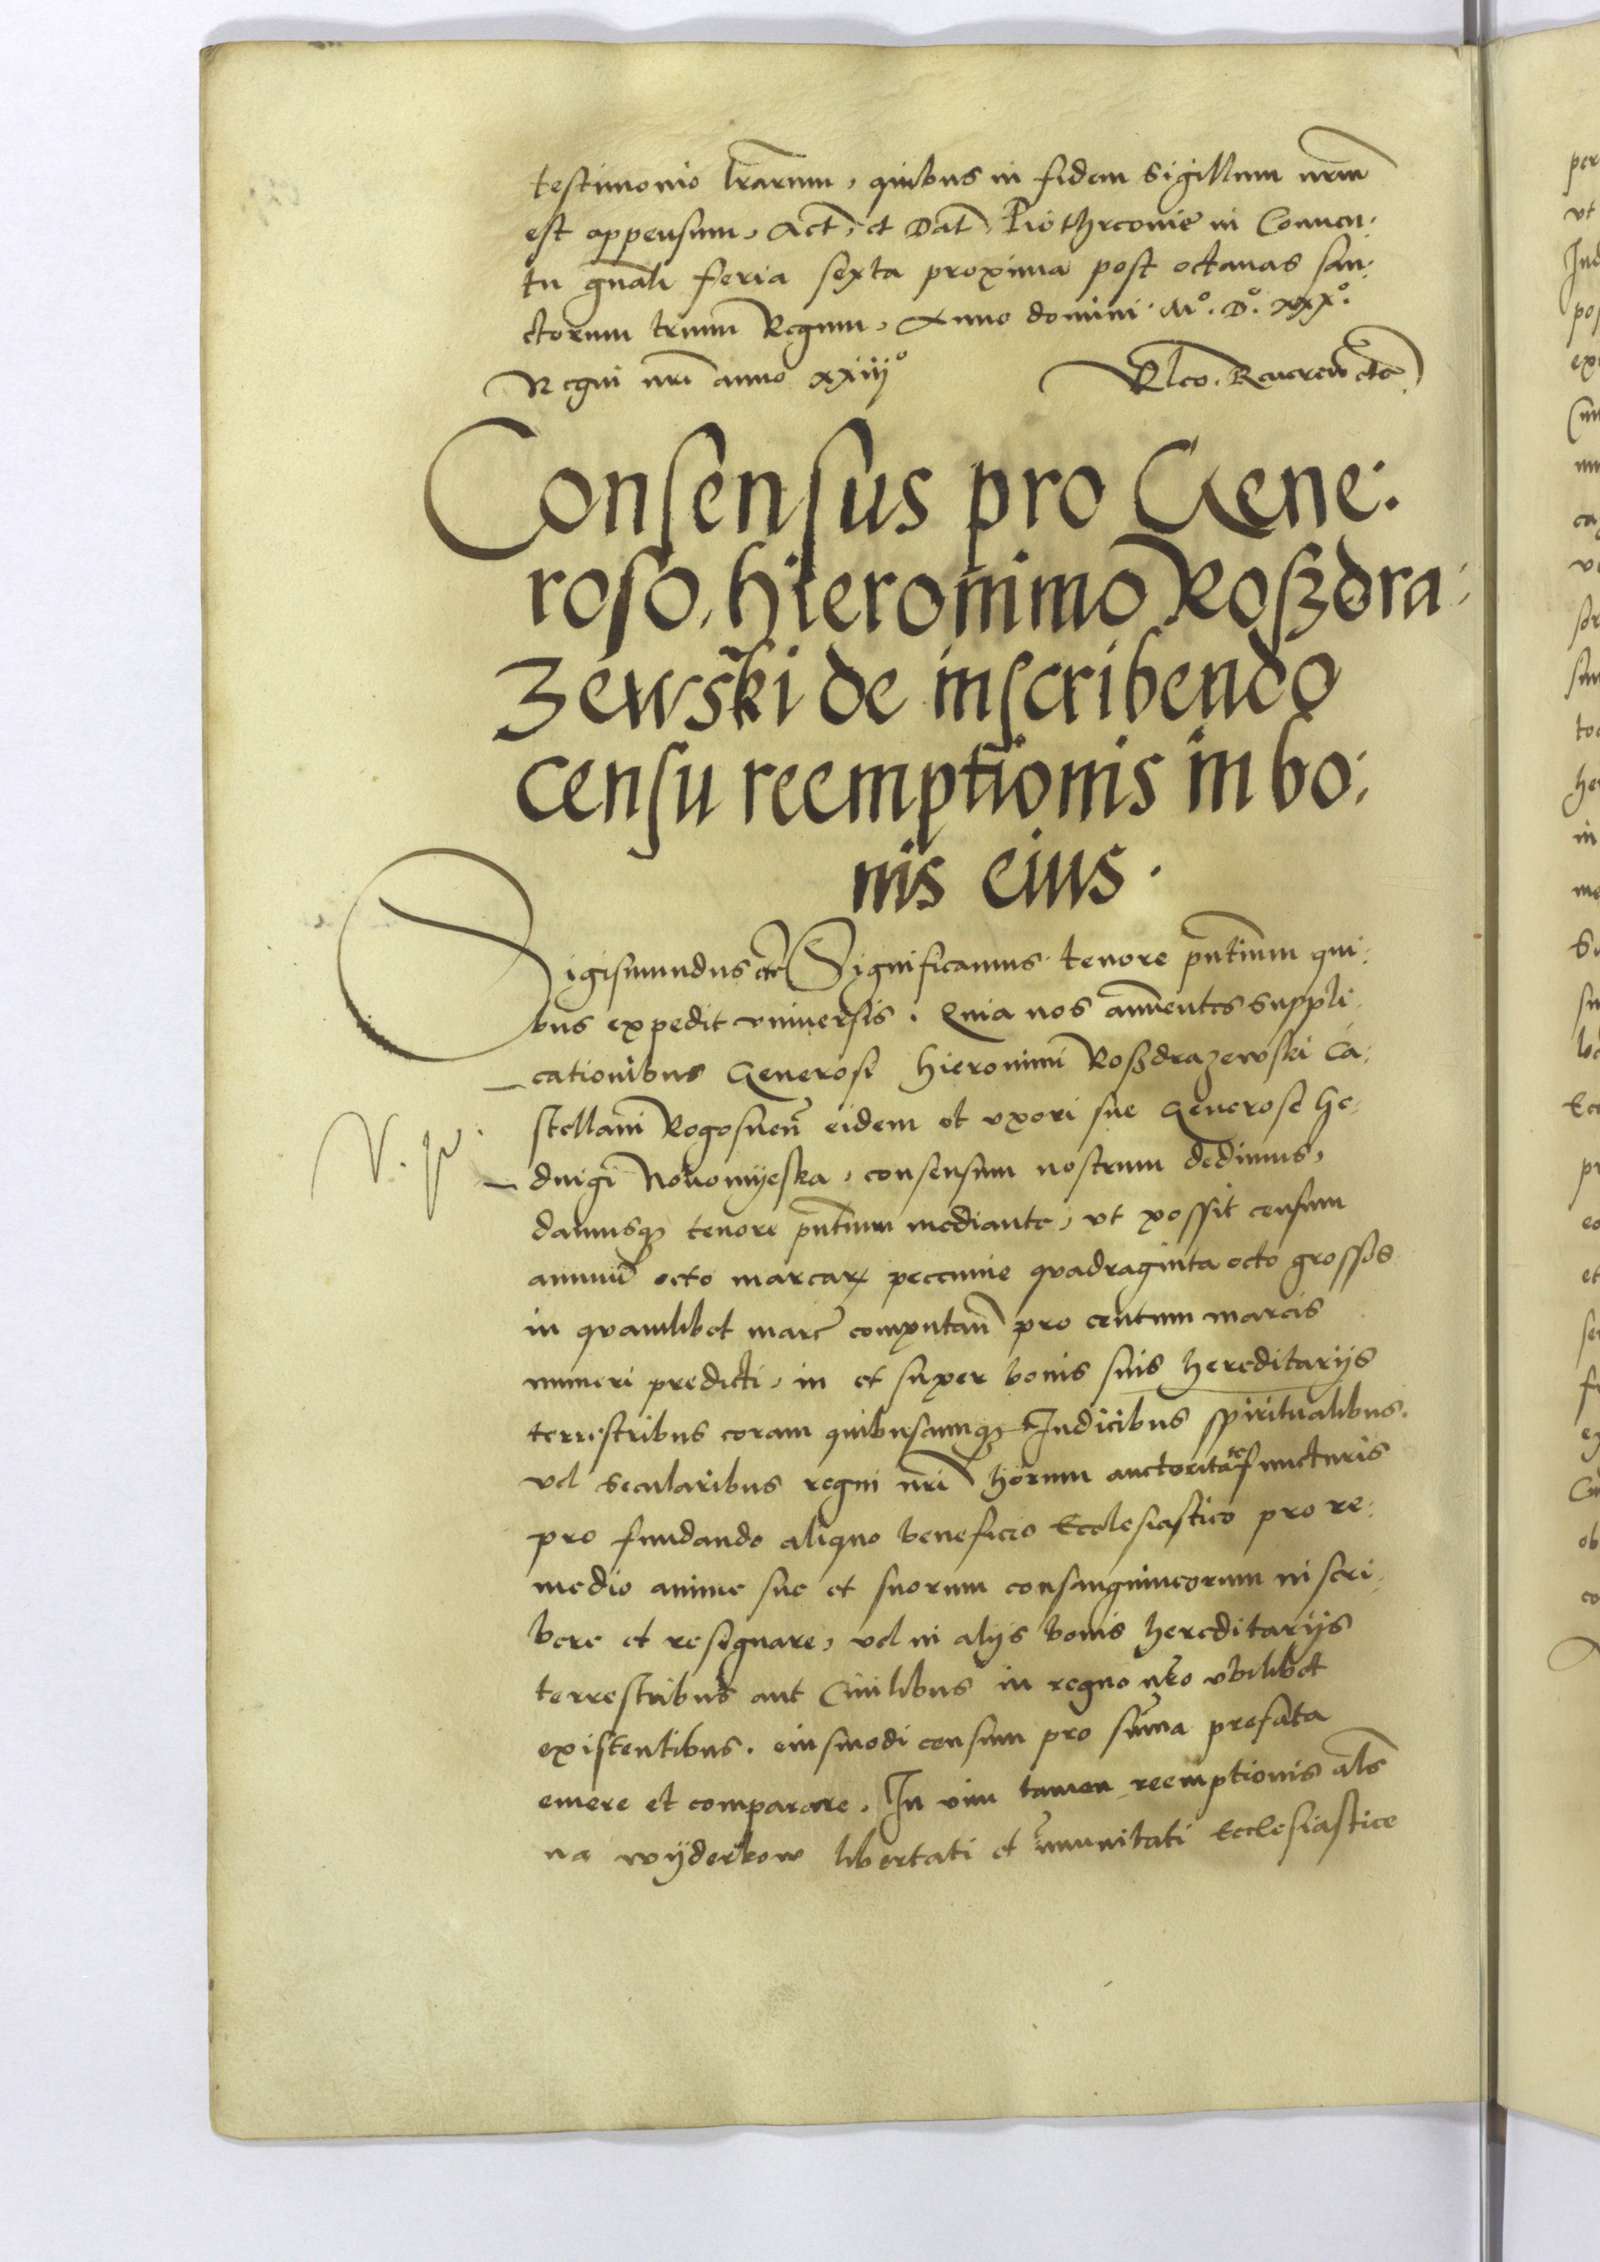 testimonio lrarum, quibus in fidem Sigillum nrm
est appensum, Act, et Dat Piothrcovie in Conven:
tu gnali feria sexta proxima post octavas San:
ctorum trium Regum, Anno domini M°. D°. XXX°.
Regni nri anno xxiiij° Rlco. Reveren etc
Consensus pro Gene:
roso, hieronimo Roszdra:
zewski de inscribendo
censu reemptionis in bo:
nis eius.
Sigismundus etc Significamus tenore pntium qui:
bus expedit universis. Quia nos annuentes suppli:
cationibus Generosi hieronimi Roszdrazewski Ca:
stellani Rogosnen eidem et uxori sue Generose he:
V.
dvigi Novomyeska, consensum nostrum dedimus,
damusq tenore pntium mediante, vt possit censum
annuu octo marcar peccunie quadraginta octo grossos
in quamlibet marc computan pro centum marcis
numeri predicti, in et super bonis suis hereditarijs
terrestribus coram quibuscumq Judicibus spiritualibus
vel secularibus regni nri horum auctoritate functuris
pro fundando aliquo beneficio Ecclesiastico pro re:
medio anime sue et suorum consanguineorum inscri:
bere et resignare, vel in alijs bonis hereditarijs
terrestribus aut Civilibus in regno nro vbilibet
existentibus. eiusmodi censum pro suma prefata
emere et comparare. In vim tamen reemptionis als
na wyderkow libertati et imunitati Ecclesiastice
per
vt